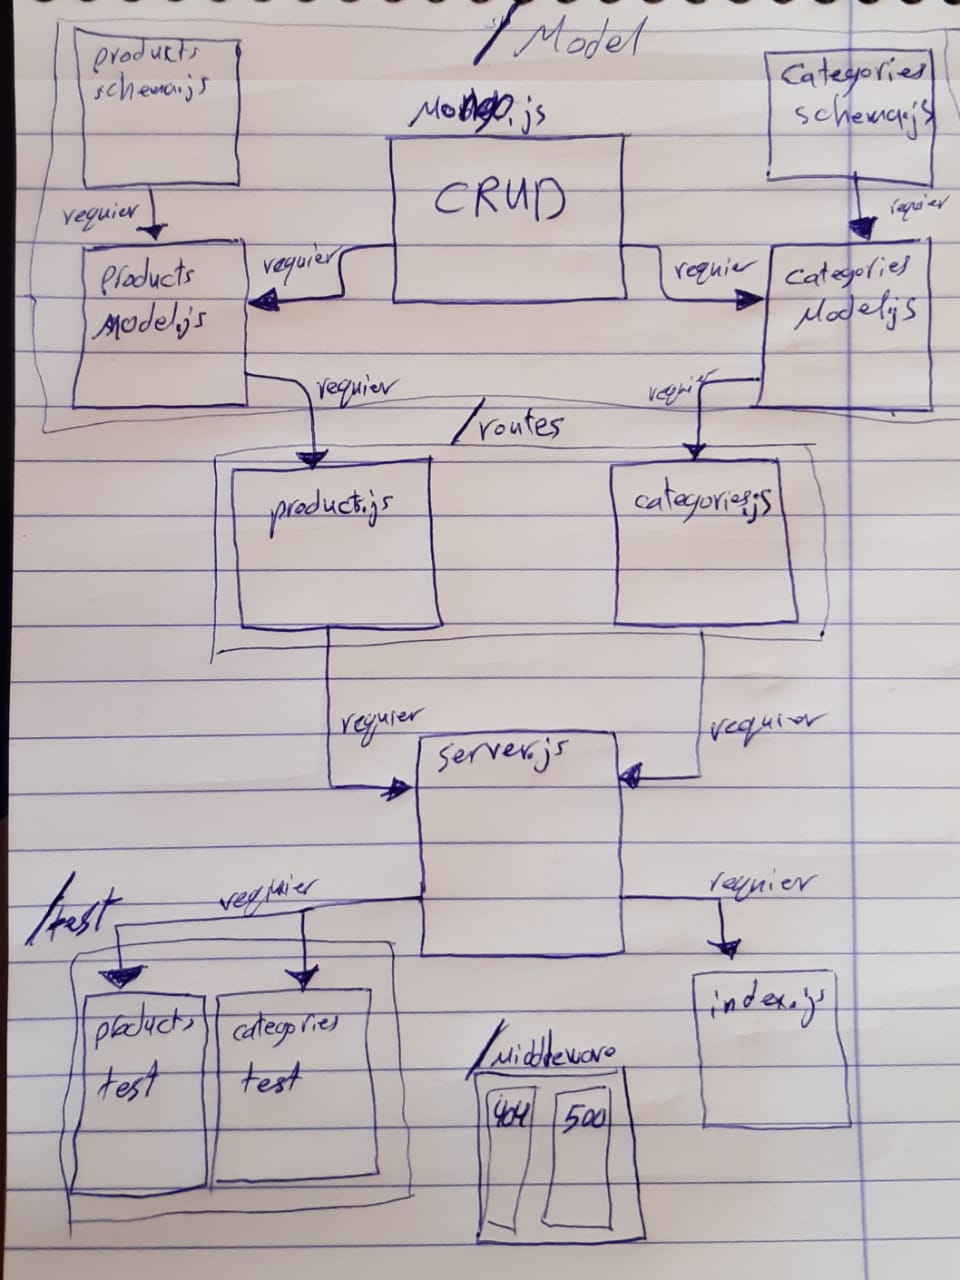 /Model
products
schema.js
Mongo.js
Categories
schema.js
CRUD
requier
requier
requier
requier
products
Model.js
categories
Model.js
requier
requier
/routes
product.js
categories.js
requier
requier
server.js
/test
requier
requier
products
test
categories
test
index.js
/Middleware
404
500